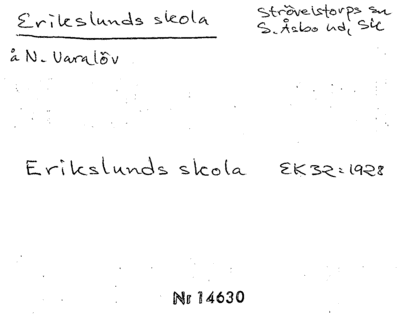 Erikslunds skola
Strövelstorps sn
S. Åsbo hd, Sk
å N. Varalöv
Erikslunds skola EK 32:1928
Nr 14630